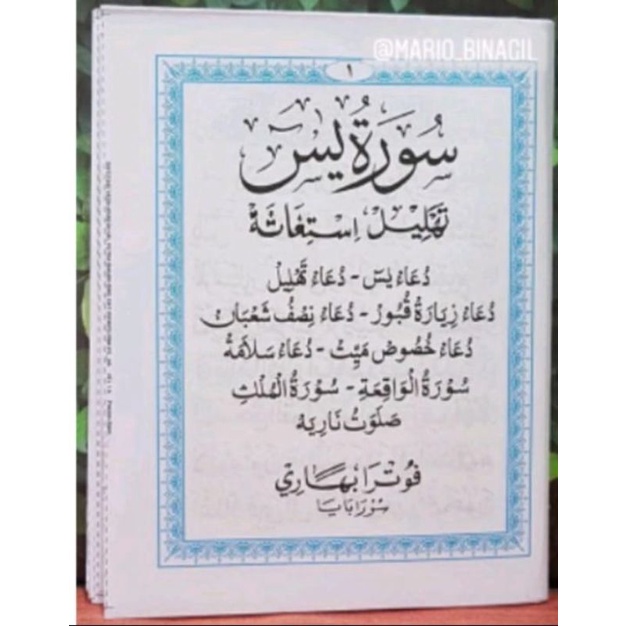 @MARIO_BINACIL
١
سُورَةُ يٰسٓ
تَهْلِيْل، اِسْتِغَاثَةْ
دُعَاءُ يٰسٓ - دُعَاءُ تَهْلِيْلُ
دُعَاءُ زِيَارَةُ قُبُورْ - دُعَاءُ نِصْفُ شَعْبَانْ
دُعَاءُ خُصُوصْ مَيِّتْ - دُعَاءُ سَلَامَةْ
سُورَةُ الْوَاقِعَةِ - سُورَةُ الْمُلْكِ
صَلَوَتْ نَارِيَه
فُوتْرَا بهَارِي
سورابايا